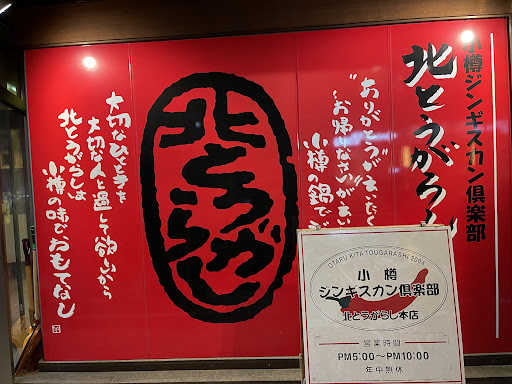 小樽ジンギスカン倶楽部
北とうがらし
ありがとうが
〜お帰りなさいが
小樽の鍋で
北とうがらし
大切なひと時を
大切な人と過して欲しいから
北とうがらしは
小樽の味でおもてなし
OTARU KITA TOUGARASHI 2004
小樽
ジンギスカン倶楽部
北とうがらし本店
営業時間
PM5:00〜PM10:00
年中無休